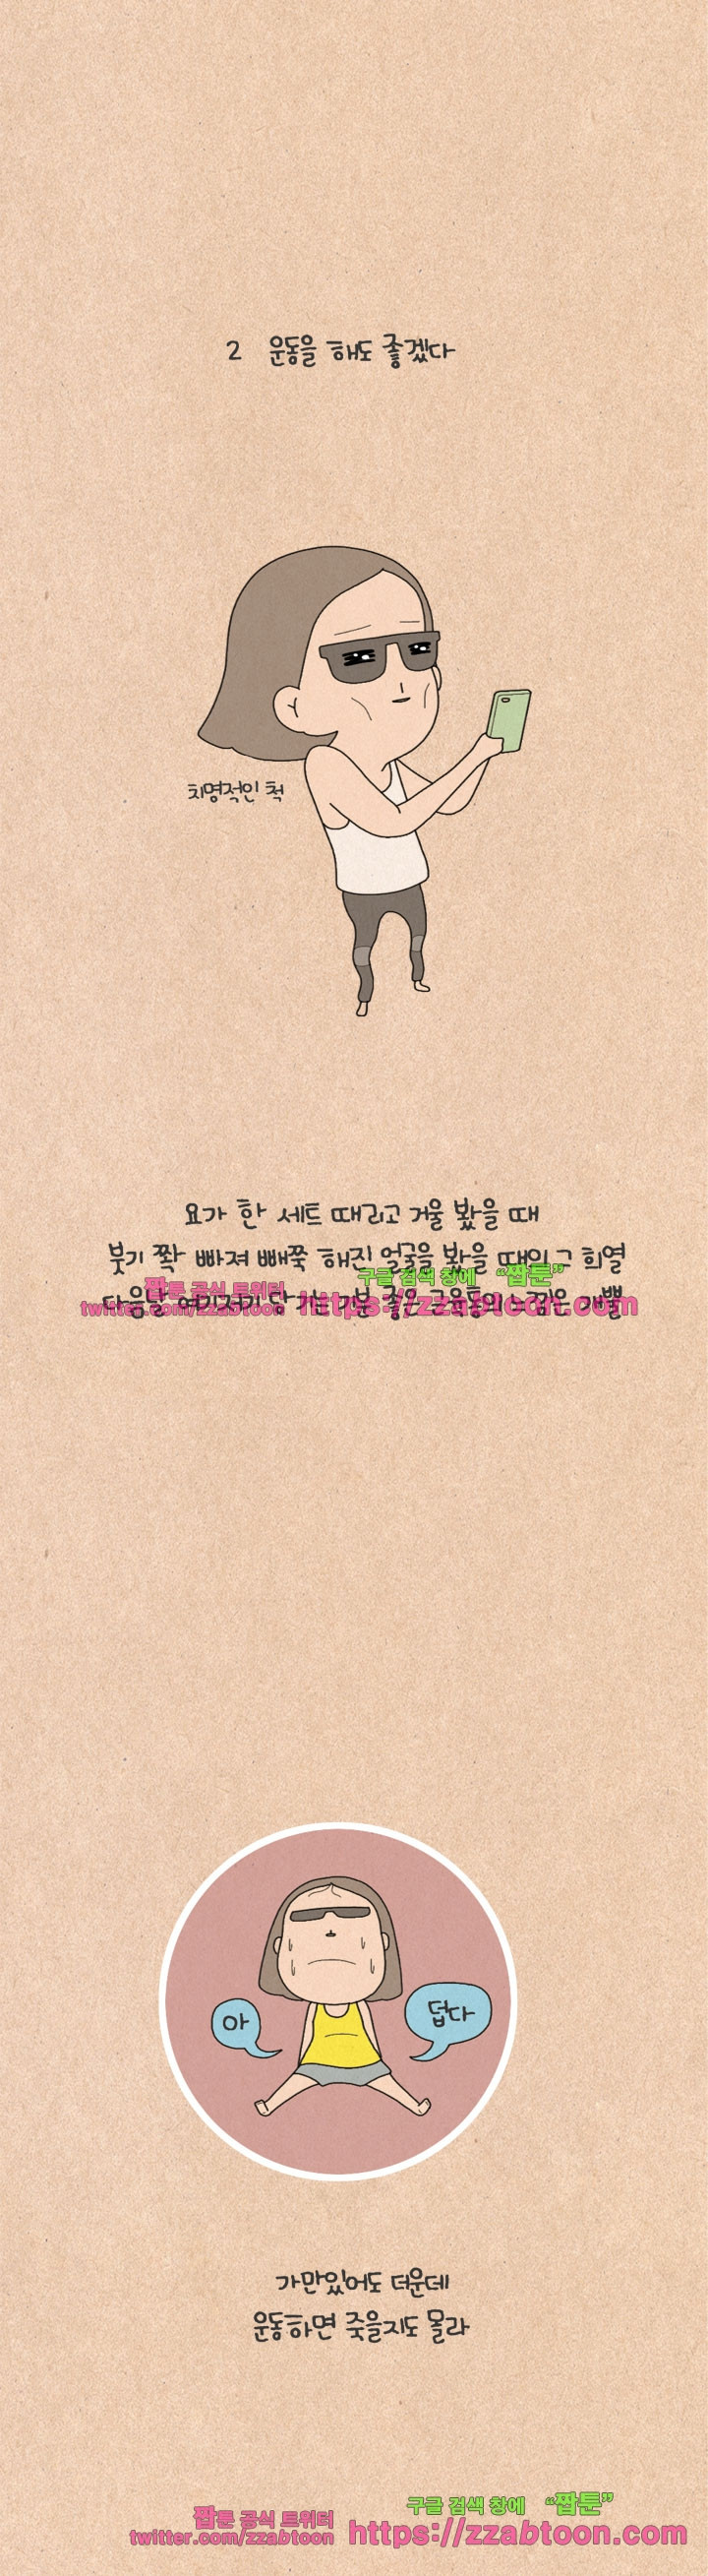 2 운동을 해도 좋겠다
치명적인 척
요가 한 세트 때리고 거울 봤을 때
붓기 쫙 빠져 빼쭉 해진 얼굴을 봤을 때의 그 희열
구글 검색 창에 “짭툰”
짭툰 공식 트위터
다음날 여기저기 당기는 기분 좋은 근육통의 느낌은 개뿔
twitter.com/zzabtoon https://zzabtoon.com
아
덥다
가만있어도 더운데
운동하면 죽을지도 몰라
구글 검색 창에 “짭툰”
짭툰 공식 트위터
twitter.com/zzabtoon https://zzabtoon.com